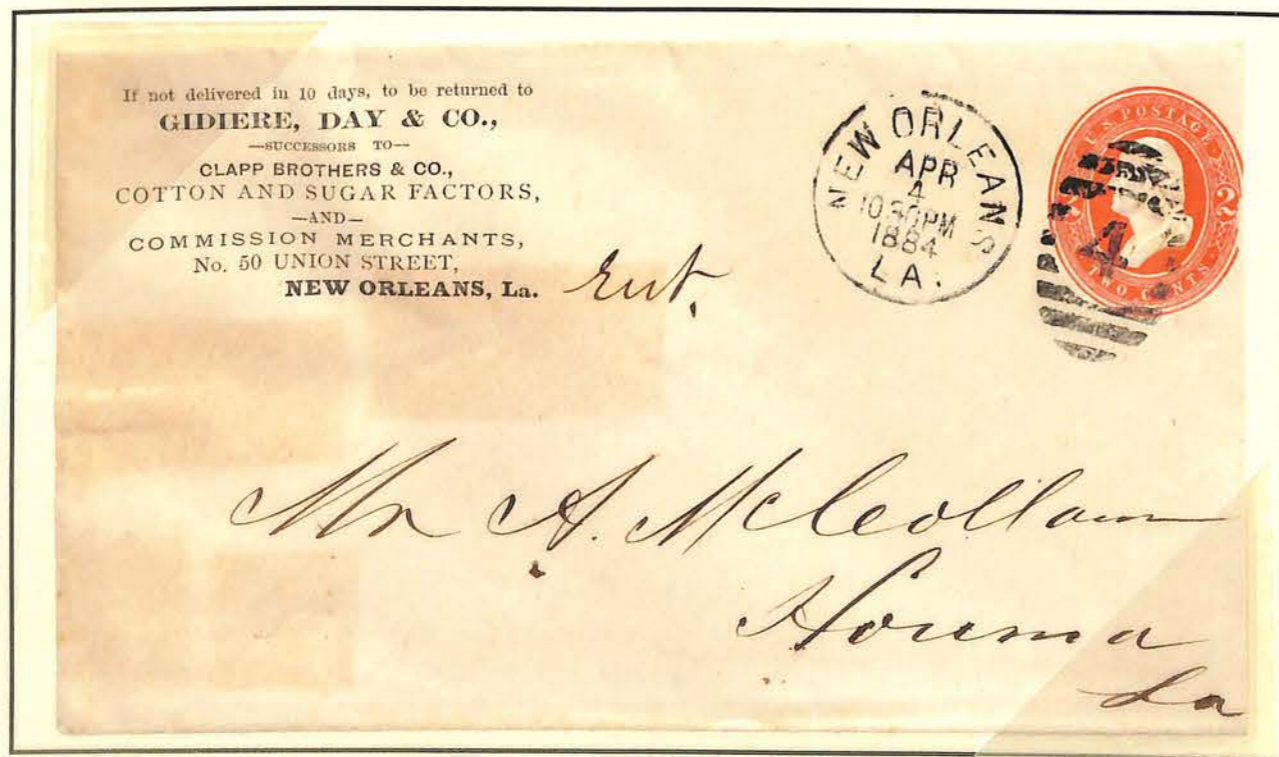 If not delivered in 10 days, to be returned to
GIDIERE, DAY & CO.,
—SUCCESSORS TO—
CLAPP BROTHERS & CO.,
COTTON AND SUGAR FACTORS,
—AND—
COMMISSION MERCHANTS,
No. 50 UNION STREET,
NEW ORLEANS, La.
NEW ORLEANS
APR
4
1030PM
1884
LA.
U.S. POSTAGE
2
TWO CENTS
4
Mr A. McCollam
Houma
La